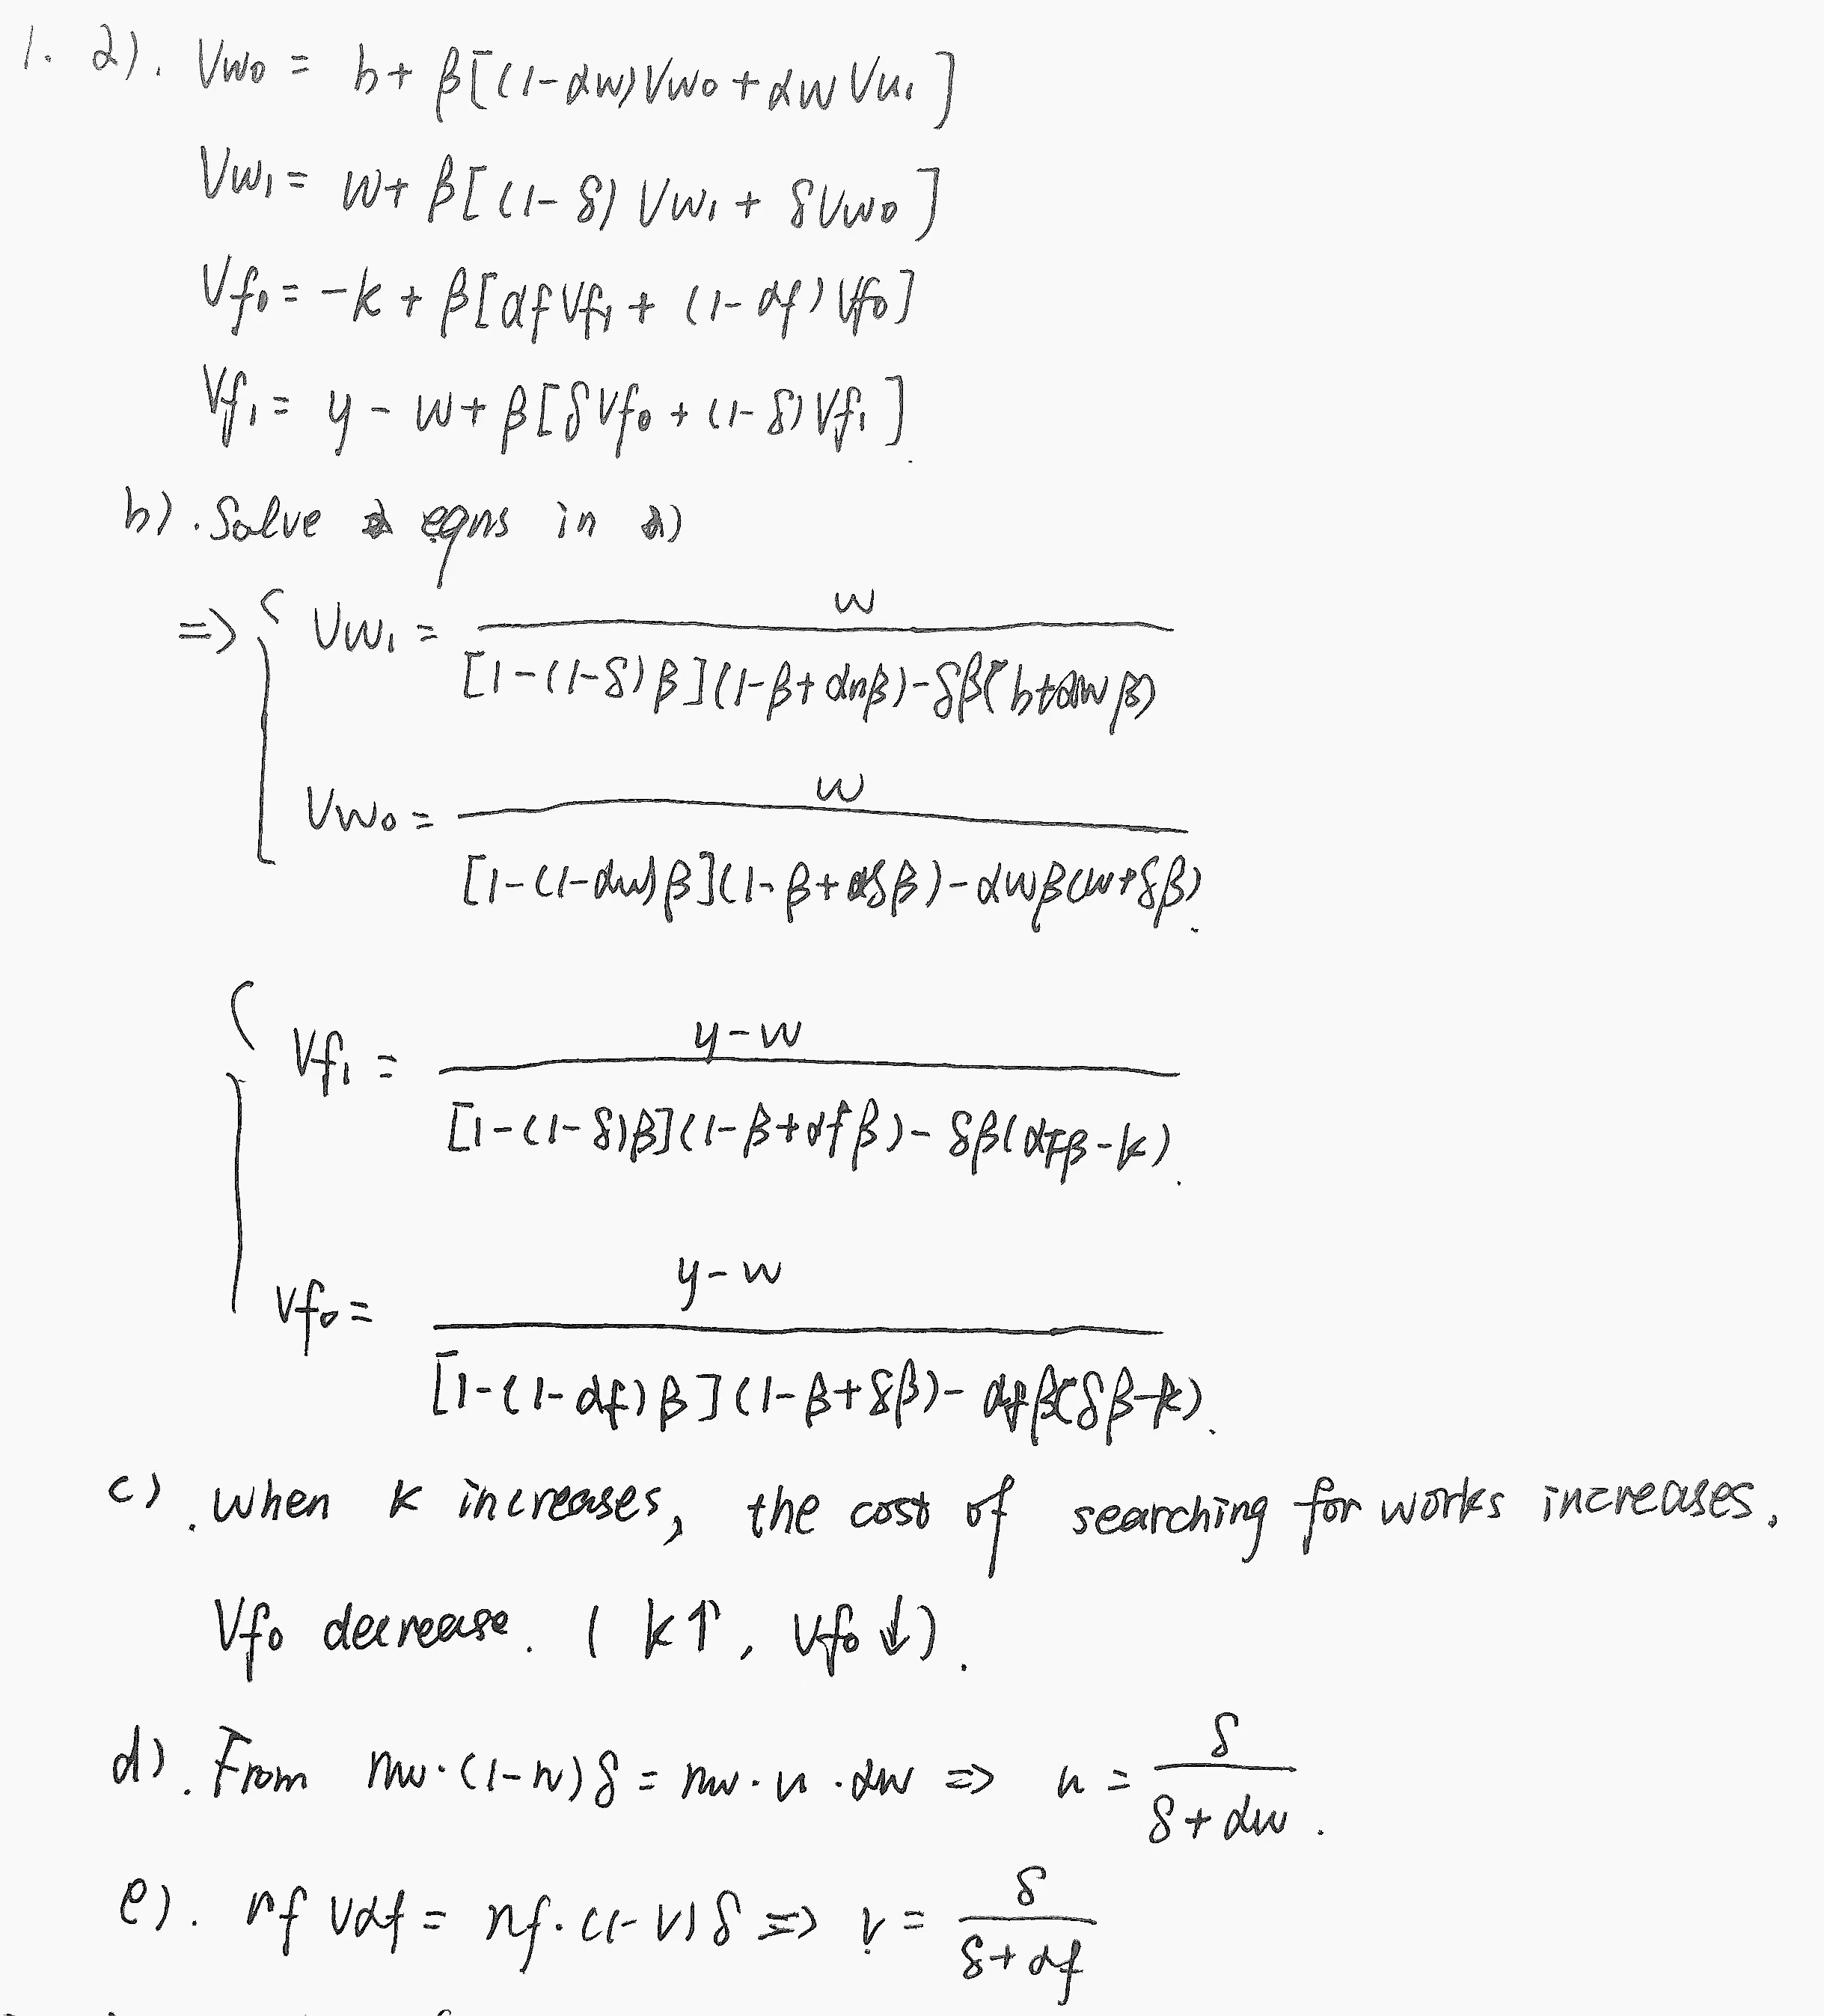 1. a). Vw₀ = b + β[(1-αw)Vw₀ + αw Vw₁]
Vw₁ = w + β[(1-δ) Vw₁ + δVw₀]
Vf₀ = -k + β[αf Vf₁ + (1-αf) Vf₀]
Vf₁ = y - w + β[δVf₀ + (1-δ) Vf₁]
b). Solve eqns in a)
=> { Vw₁ = w / [1-(1-δ)β](1-β+αnβ)-δβ(b+αwβ)
Vw₀ = w / [1-(1-αw)β](1-β+δβ)-αwβ(w+δβ).
{ Vf₁ = y-w / [1-(1-δ)β](1-β+αfβ)-δβ(αfβ-k).
Vf₀ = y-w / [1-(1-αf)β](1-β+δβ)-αfβ(δβ-k).
c). When k increases, the cost of searching for works increases.
Vf₀ decrease. ( k↑, Vf₀↓).
d). From nw·(1-u)δ = nw·u·αw => u = δ / δ+αw.
e). nf vαf = nf·(1-v)δ => v = δ / δ+αf